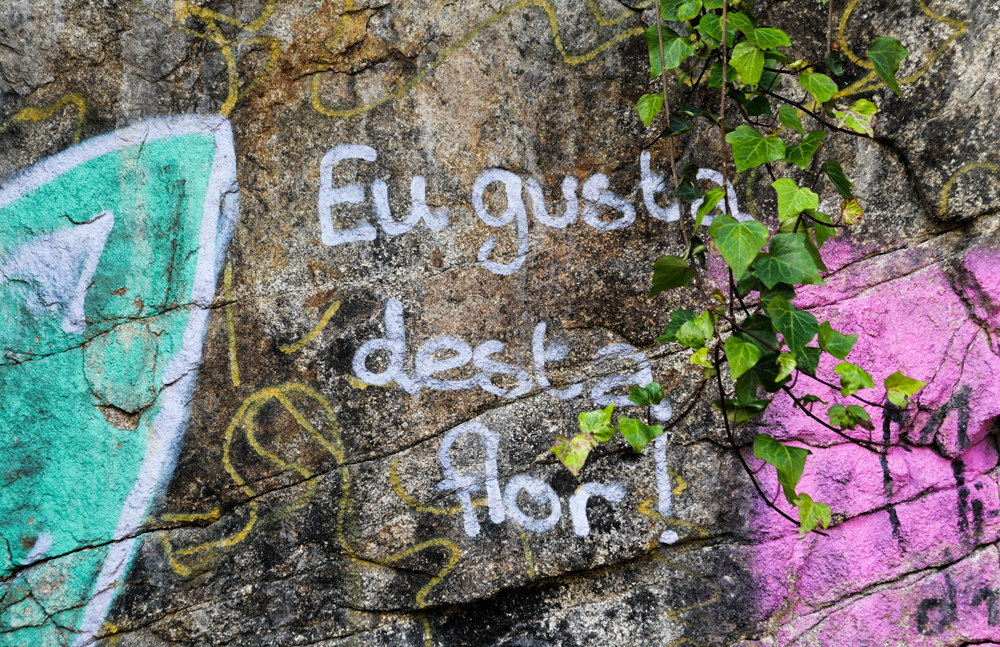 Eu gusta
desta
flor!